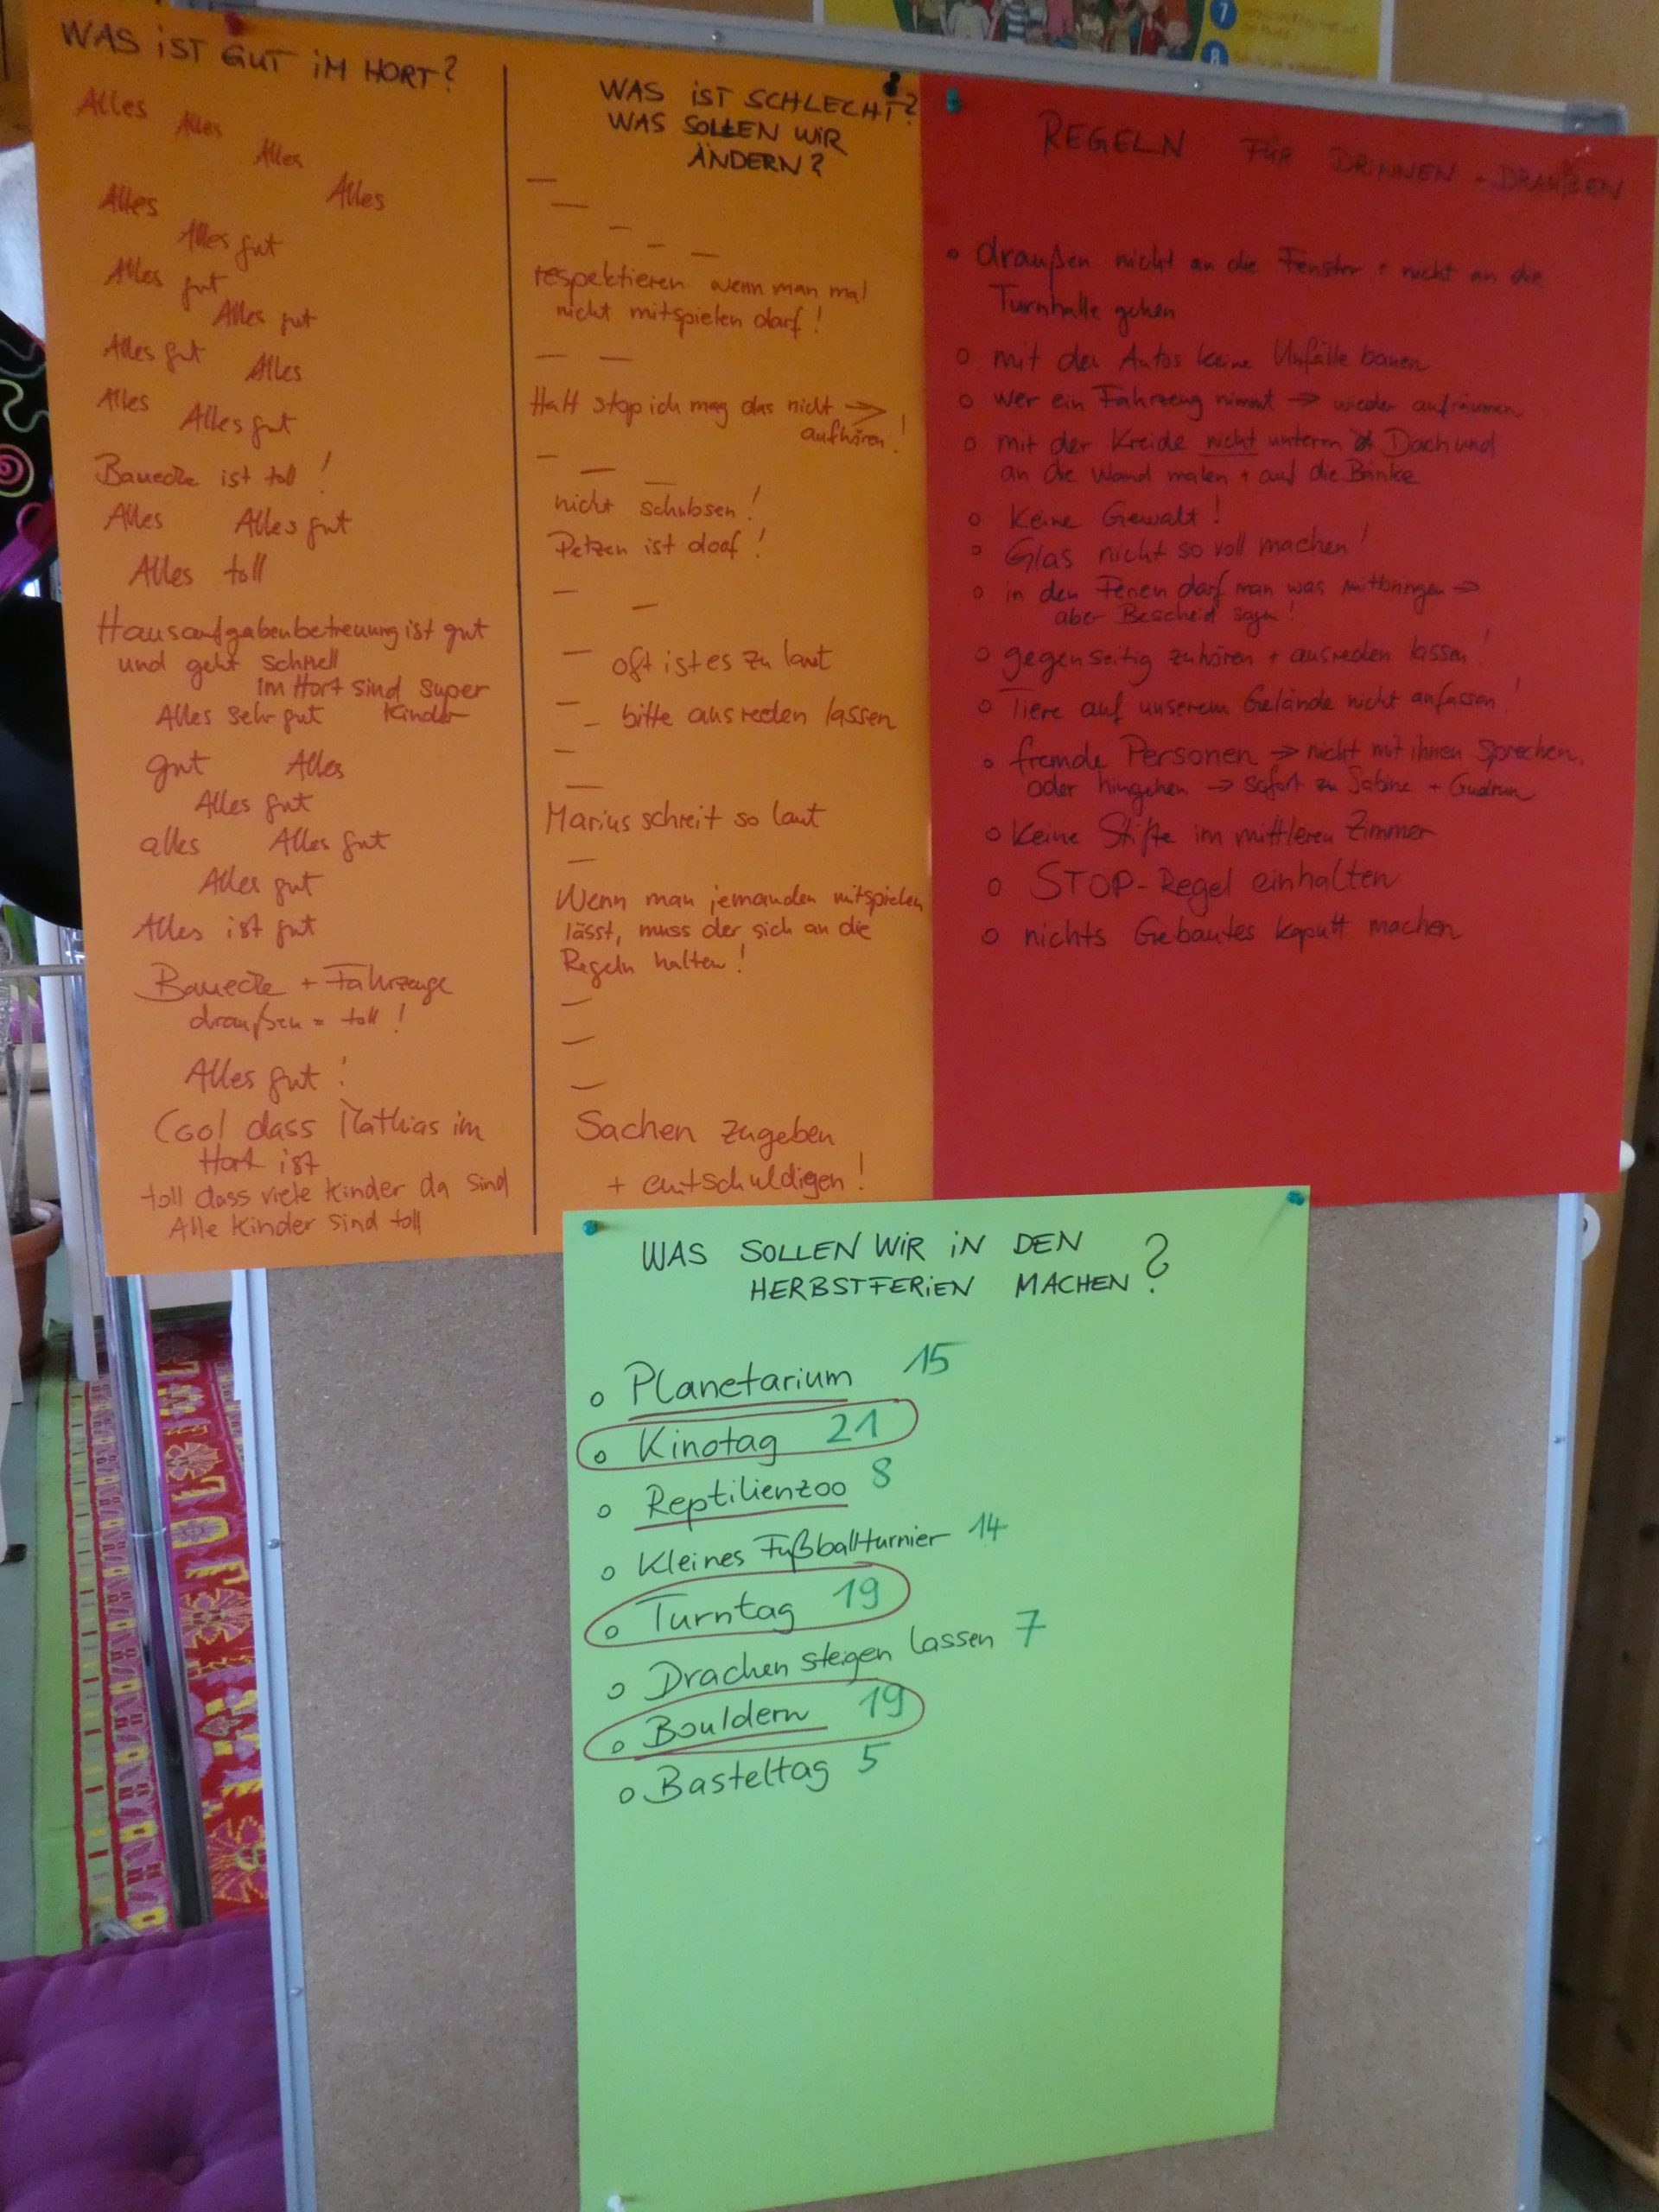 WAS IST GUT IM HORT?
Alles
Alles
Alles
Alles
Alles
Alles gut
Alles gut
Alles gut
Alles gut
Alles
Alles
Alles gut
Bauecke ist toll!
Alles Alles gut
Alles toll
Hausaufgabenbetreuung ist gut
und geht schnell
im Hort sind super
Kinder
Alles sehr gut
gut Alles
Alles gut
alles Alles gut
Alles gut
Alles ist gut
Bauecke + Fahrzeuge
draußen = toll!
Alles gut!
Cool dass Mathias im
Hort ist
toll dass viele Kinder da sind
Alle Kinder sind toll
WAS IST SCHLECHT?
WAS SOLLEN WIR
ÄNDERN?
respektieren wenn man mal
nicht mitspielen darf!
Halt stop ich mag das nicht →
aufhören!
nicht schubsen!
Petzen ist doof!
oft ist es zu laut
bitte ausreden lassen
Marius schreit so laut
Wenn man jemanden mitspielen
lässt, muss der sich an die
Regeln halten!
Sachen zugeben
+ entschuldigen!
REGELN FÜR DRINNEN - DRAUßEN
draußen nicht an die Fenster + nicht an die
Turnhalle gehen
mit den Autos keine Unfälle bauen
wer ein Fahrzeug nimmt → wieder aufräumen
mit der Kreide nicht unterm Dach und
an die Wand malen + auf die Bänke
Keine Gewalt!
Glas nicht so voll machen!
in den Ferien darf man was mitbringen →
aber Bescheid sagen!
gegenseitig zuhören + ausreden lassen!
Tiere auf unserem Gelände nicht anfassen!
fremde Personen → nicht mit ihnen sprechen,
oder hingehen → sofort zu Sabine + Gudrun
Keine Stifte im mittleren Zimmer
STOP-Regel einhalten
nichts Gebautes kaputt machen
WAS SOLLEN WIR IN DEN
HERBSTFERIEN MACHEN?
Planetarium 15
Kinotag 21
Reptilienzoo 8
Kleines Fußballturnier 14
Turntag 19
Drachen steigen lassen 7
Bouldern 19
Basteltag 5
7
8